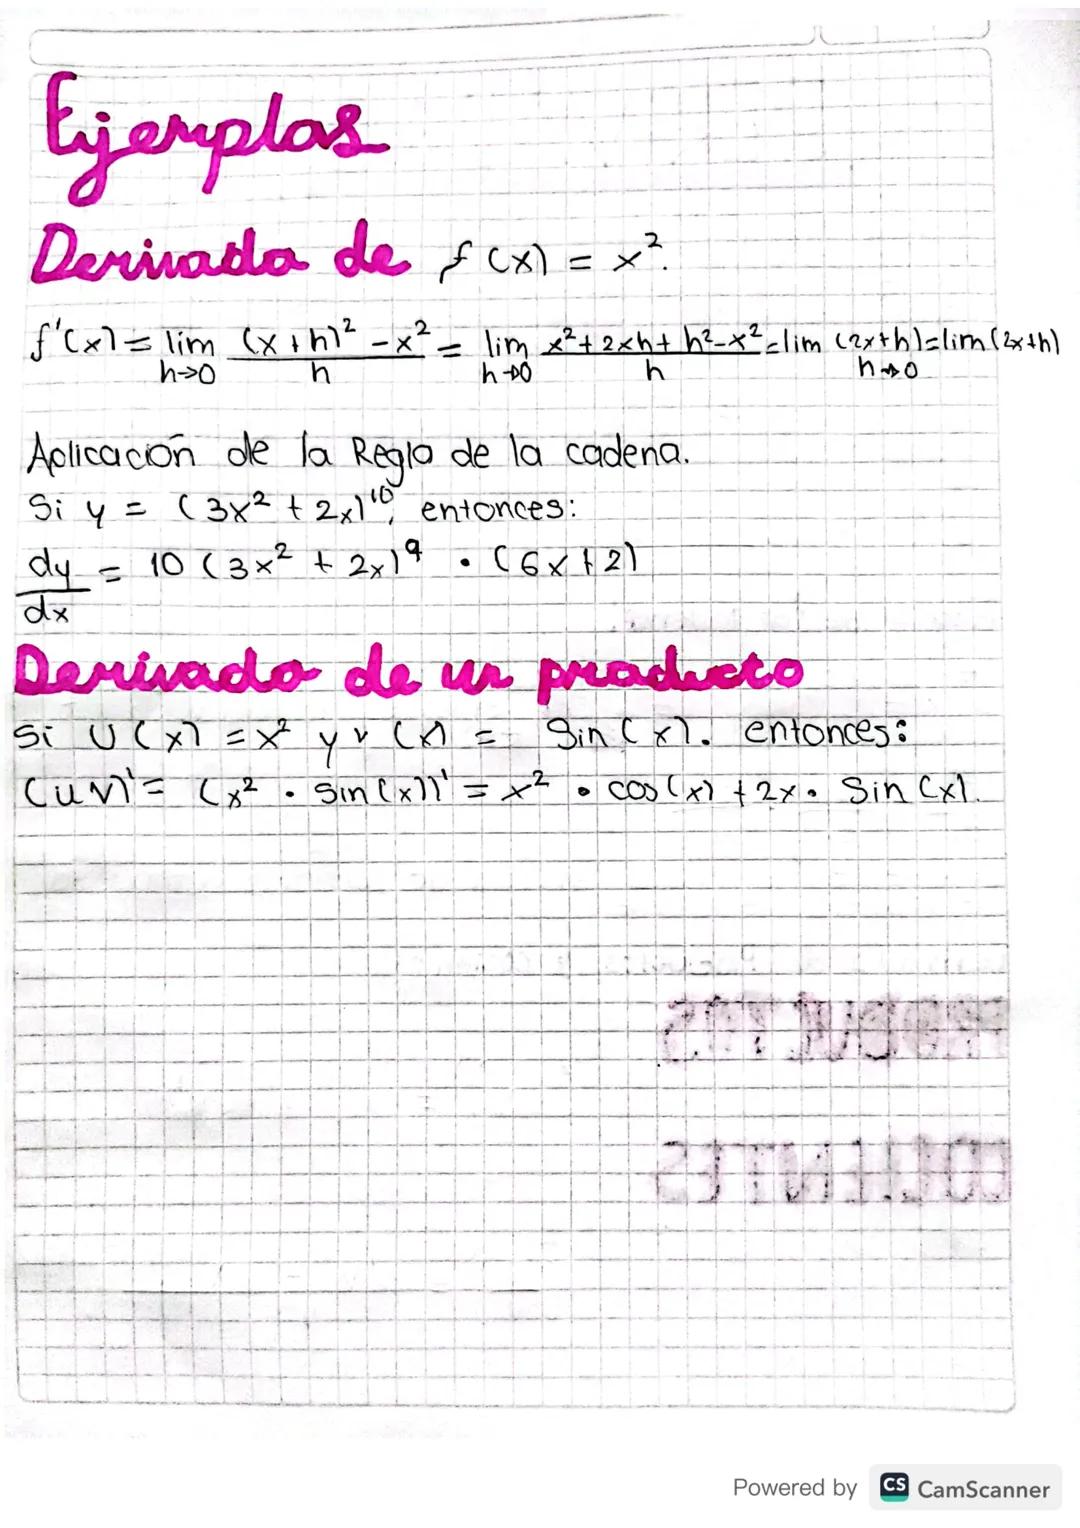 Ejemplos
Derivada de f(x) = x².
f'(x) = lim h→0 (x+h)² - x² / h = lim h→0 x² + 2xh + h² - x² / h = lim h→0 (2x+h) = lim (2x+h)
Aplicación de la Regla de la cadena.
Si y = (3x² + 2x)¹⁰, entonces:
dy/dx = 10 (3x² + 2x)⁹ · (6x+2)
Derivado de un producto
Si U(x) = x² y v(x) = Sin(x). entonces:
(uv)' = (x² · Sin(x))' = x² · cos(x) + 2x · Sin(x).
PRODUCTOS
COCIENTES
Powered by CS CamScanner